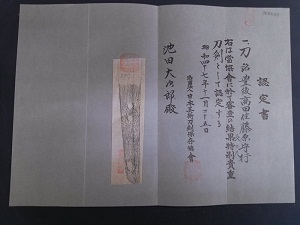 認定書
一、刀 銘 豊後高田住藤原守行
右は當協會に於て審査の結果特別貴重
刀剣として認定する
昭和四十七年十一月二十五日
財團法人日本美術刀剣保存協會
池田大次郎殿